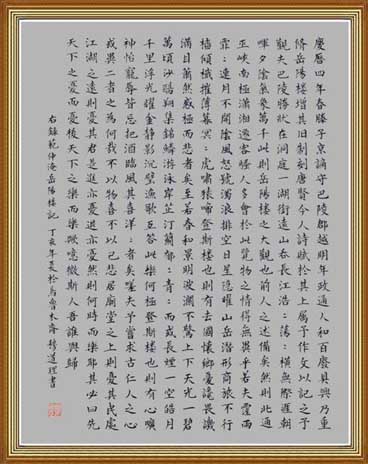 慶曆四年春滕子京謫守巴陵郡越明年政通人和百廢具興乃重
脩岳陽樓增其旧制刻唐賢今人詩賦於其上属予作文以記之予
觀夫巴陵勝狀在洞庭一湖銜遠山吞長江浩:蕩:橫無際涯朝
暉夕陰氣象萬千此則岳陽樓之大觀也前人之述備矣然則北通
巫峽南極瀟湘遷客騷人多會於此覽物之情得無異乎若夫霪雨
霏:連月不開陰風怒號濁浪排空日星隱曜山岳潛形商旅不行
檣傾楫摧薄暮冥:虎嘯猿啼登斯樓也則有去國懷鄉憂讒畏譏
滿目蕭然感極而悲者矣至若春和景明波瀾不驚上下天光一碧
萬頃沙鷗翔集錦鱗游泳岸芷汀蘭郁:青:而或長煙一空皓月
千里浮光躍金静影沉璧漁歌互答此樂何極登斯樓也則有心曠
神怡寵辱皆忘把酒臨風其喜洋:者矣嗟夫予嘗求古仁人之心
或異二者之為何哉不以物喜不以己悲居廟堂之上則憂其民處
江湖之遠則憂其君是進亦憂退亦憂然則何時而樂耶其必曰先
天下之憂而憂後天下之樂而樂歟噫微斯人吾誰與歸
右錄範仲淹岳陽樓記 丁亥年夏於烏魯木齊 穆道理書